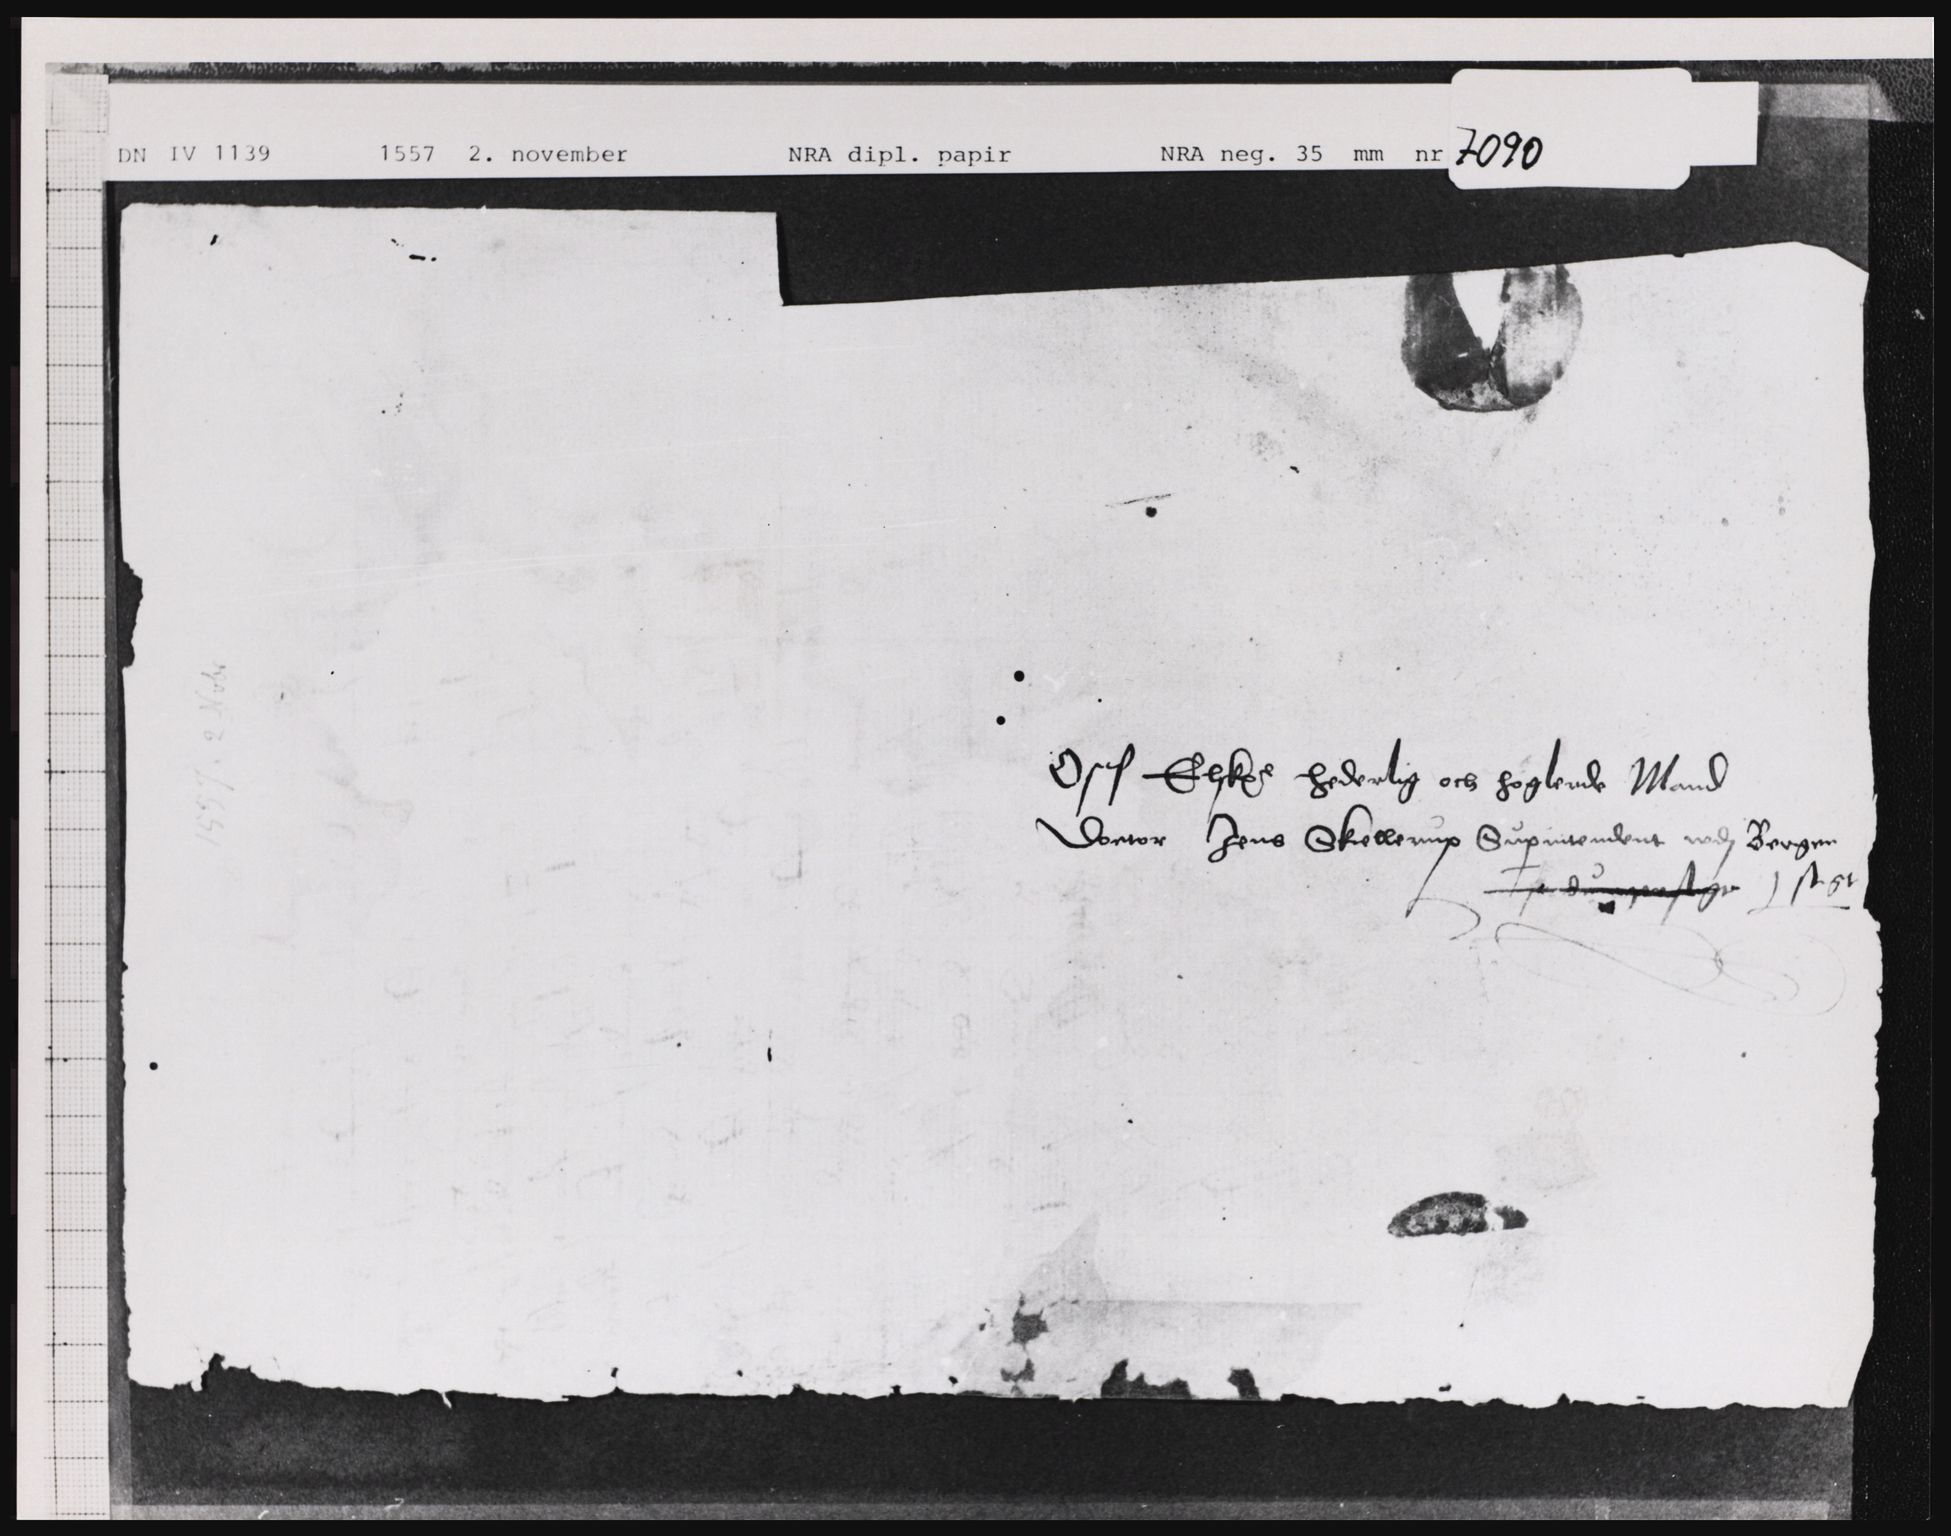 DN IV 1139 1557 2. november NRA dipl. papir NRA neg. 35 mm nr 7090
1557. 2 Novbr
Oss Elskel hederlig och høglerde Mand
Doctor Jens Skellerup Supintendent wdj Bergen
stigt